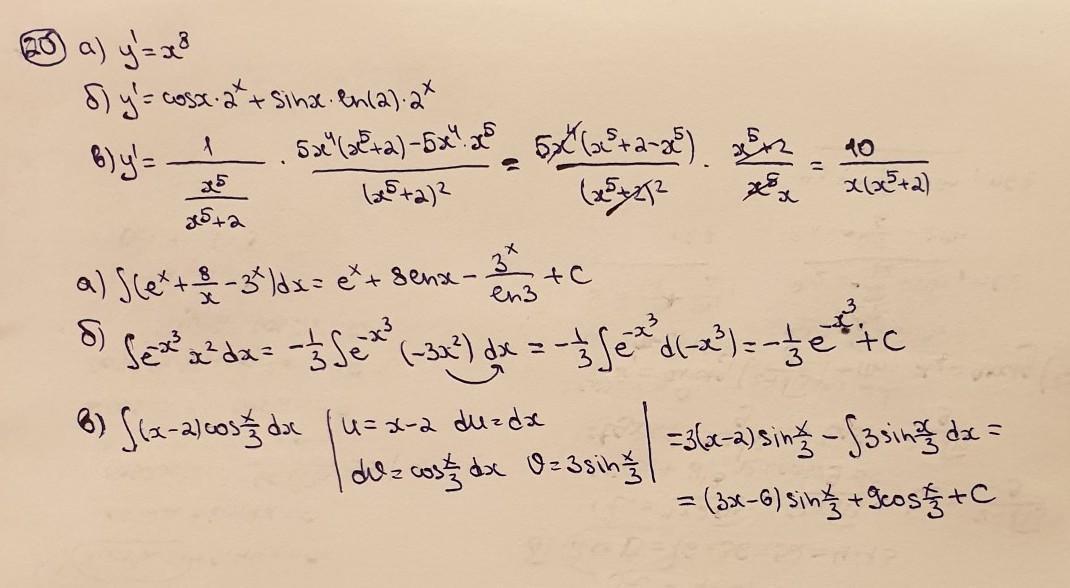 20 а) y' = x⁸
б) y' = cosx · 2ˣ + sinx · ln(2) · 2ˣ
в) y' = 1/(x⁵/(x⁵+2)) · (5x⁴(x⁵+2) − 5x⁴ · x⁵)/(x⁵+2)² = 5x⁴(x⁵+2−x⁵)/(x⁵+2)² · (x⁵+2)/(x⁵ x) = 10/(x(x⁵+2))
а) ∫(eˣ + 8/x − 3ˣ)dx = eˣ + 8lnx − 3ˣ/ln3 + C
б) ∫e^(−x³) x² dx = −1/3 ∫e^(−x³) (−3x²) dx = −1/3 ∫e^(−x³) d(−x³) = −1/3 e^(−x³) + C
в) ∫(x−2)cos x/3 dx | u = x−2 du = dx
dv = cos x/3 dx v = 3sin x/3 | = 3(x−2)sin x/3 − ∫3sin x/3 dx =
= (3x−6)sin x/3 + 9cos x/3 + C